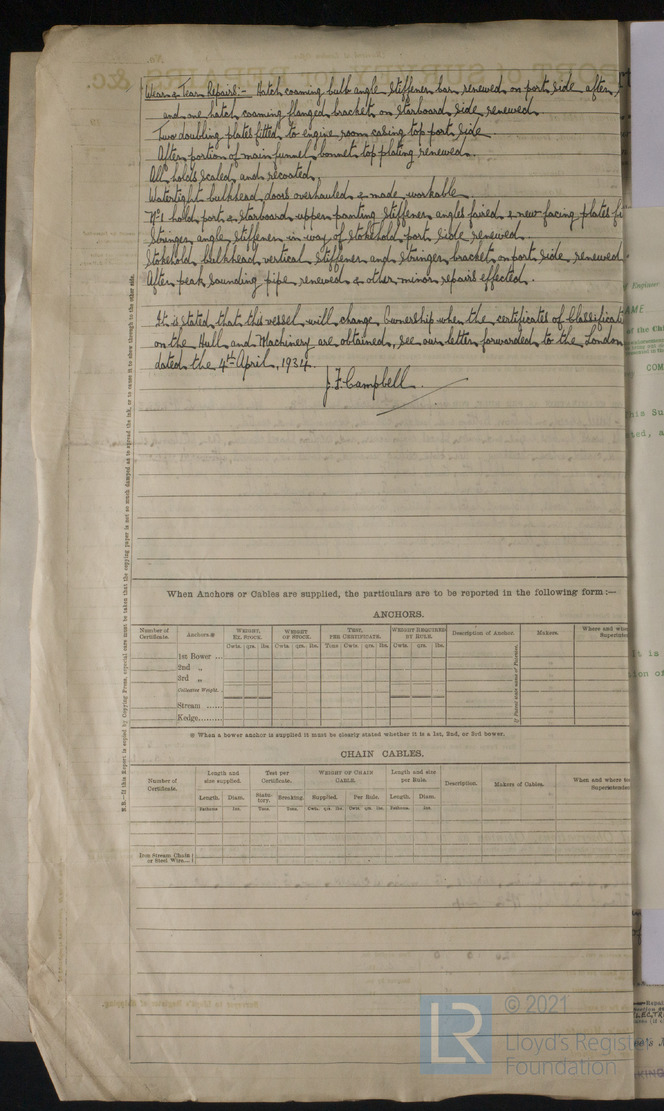 Wear & Tear Repairs:- Hatch coaming bulb angle stiffener bar renewed on port side after
and one hatch coaming flanged bracket on starboard side renewed.
Two doubling plates fitted to engine room casing top port side.
After portion of main funnel bonnet top plating renewed.
All holds scaled and recoated.
Watertight bulkhead doors overhauled & made workable
No 1 hold, port & starboard upper panting stiffener angles faired & new facing plates fi
Stringer angle stiffener in way of stokehold port side renewed.
Stokehold bulkhead, vertical stiffener and stringer bracket on port side renewed
After peak sounding pipe renewed & other minor repairs effected.
It is stated that this vessel will change Ownership when the certificates of Classificati
on the Hull and Machinery are obtained, see our letter forwarded to the London
dated the 4th April, 1934.
J. F. Campbell.
When Anchors or Cables are supplied, the particulars are to be reported in the following form:—
ANCHORS.
Number of Certificate. Anchors.※ WEIGHT, EX. STOCK. WEIGHT OF STOCK. TEST, PER CERTIFICATE. WEIGHT REQUIRED BY RULE. Description of Anchor. Makers. Where and whe Superintend
Cwts. qrs. lbs. Cwts. qrs. lbs. Tons Cwts. qrs. lbs. Cwts. qrs. lbs.
1st Bower ...
2nd „
3rd „
Collective Weight.
Stream ......
Kedge.......
※ When a bower anchor is supplied it must be clearly stated whether it is a 1st, 2nd, or 3rd bower.
CHAIN CABLES.
Number of Certificate. Length and size supplied. Test per Certificate. WEIGHT OF CHAIN CABLE. Length and size per Rule. Description. Makers of Cables. When and where te Superintendent
Length. Diam. Statutory. Breaking. Supplied. Per Rule. Length. Diam.
Fathoms. Ins. Tons. Tons. Cwts. qrs. lbs. Cwts. qrs. lbs. Fathoms. Ins.
Iron Stream Chain or Steel Wire...
N.B.—If this Report is copied by Copying Press, especial care must be taken that the copying paper is not so much damped as to spread the ink, or to cause it to show through to the other side.
Engineer
AME
of the Chi
COM
his Su
ted, a
t is
ion of
LR
© 2021
Lloyd's Register
Foundation